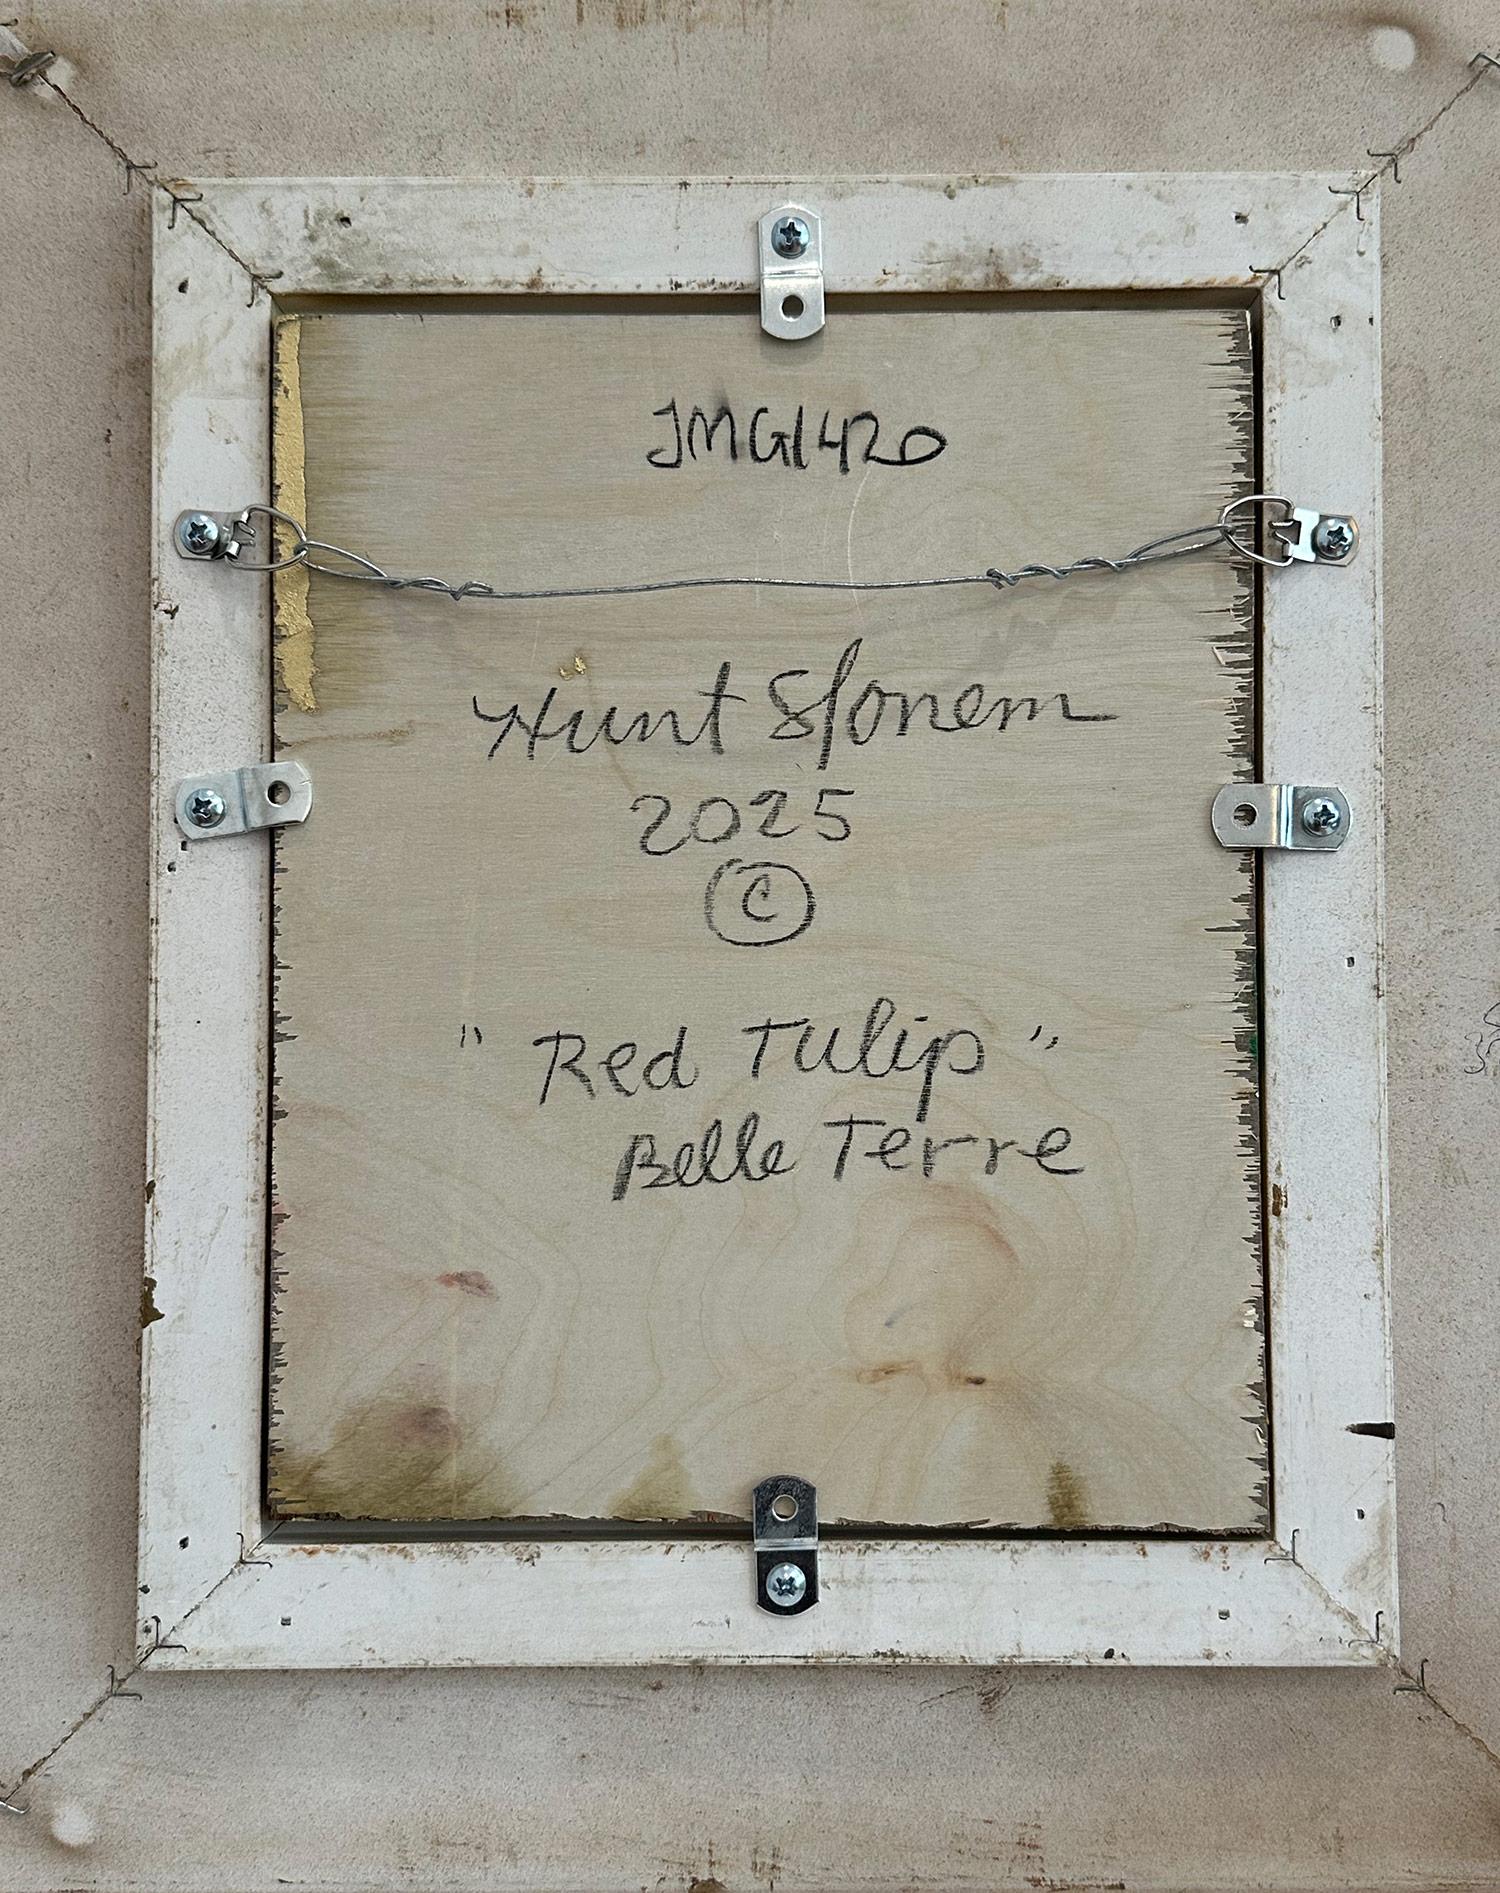 JMG1420
Hunt Slonem
2025
©
"Red Tulip"
Belle Terre